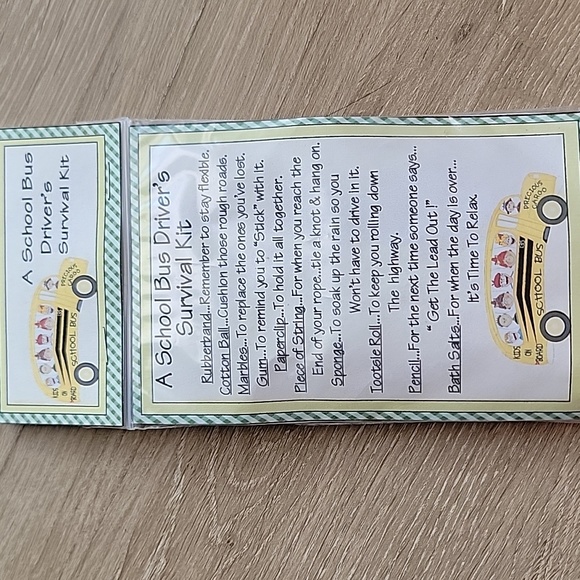 A School Bus
Driver's
Survival Kit
KIDS
ON
BOARD
PRECIOUS
CARGO
SCHOOL BUS
A School Bus Driver's
Survival Kit
Rubberband...Remember to stay flexible.
Cotton Ball...Cushion those rough roads.
Marbles...To replace the ones you've lost.
Gum...To remind you to "Stick" with it.
Paperclip...To hold it all together.
Piece of String...For when you reach the
End of your rope...tie a knot & hang on.
Sponge...To soak up the rain so you
Won't have to drive in it.
Tootsie Roll...To keep you rolling down
The highway.
Pencil...For the next time someone says...
" Get The Lead Out !"
Bath Salts...For when the day is over...
It's Time To Relax.
KIDS
ON
BOARD
PRECIOUS
CARGO
SCHOOL BUS